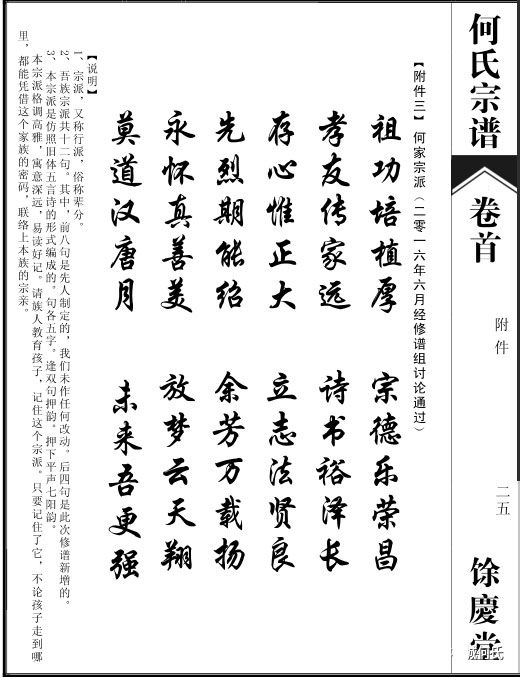 何氏宗谱
卷首
附件
二五
馀慶堂
【附件三】何家宗派（二零一六年六月经修谱组讨论通过）
祖功培植厚 宗德乐荣昌
孝友传家远 诗书裕泽长
存心惟正大 立志法贤良
先烈期能绍 余芳万载扬
永怀真善美 放梦云天翔
莫道汉唐月 未来吾更强
【说明】
1、宗派，又称行派，俗称辈分。
2、吾族宗派共十二句。其中，前八句是先人制定的，我们未作任何改动。后四句是此次修谱新增的。
3、本宗派是仿照旧体五言诗的形式编成的。句各五字。逢双句押韵。押下平声七阳韵。
本宗派格调高雅，寓意深远，易读好记。请族人教育孩子，记住这个宗派。只要记住了它，不论孩子走到哪
里，都能凭借这个家族的密码，联络上本族的宗亲。